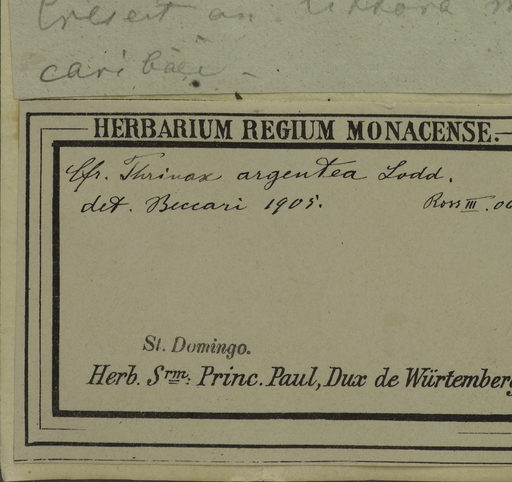 Crescit in littore m
caribaei -
HERBARIUM REGIUM MONACENSE.
Cfr. Thrinax argentea Lodd.
det. Beccari 1905. Ross III. 06
St. Domingo.
Herb. Srm: Princ. Paul, Dux de Würtemberg